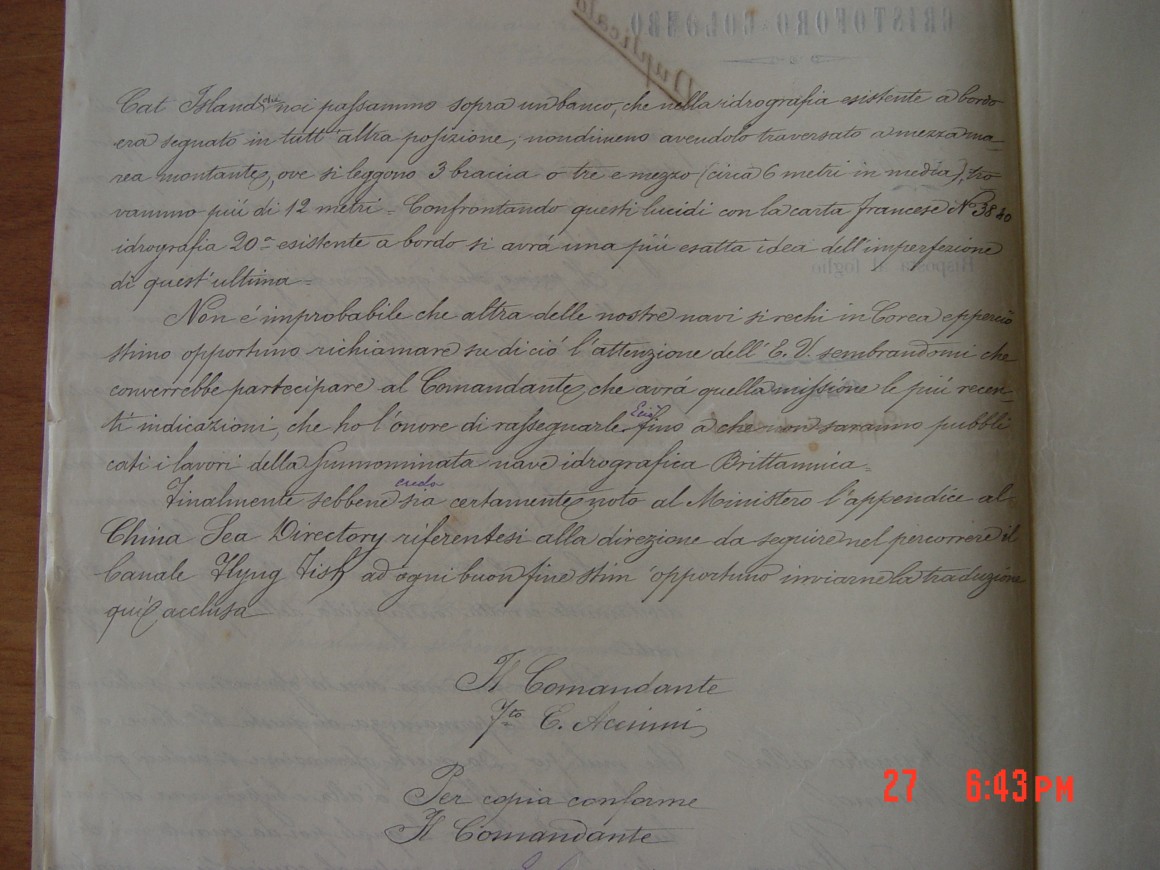 CRISTOFORO COLOMBO
Duplicato
Cat Island che noi passammo sopra un banco, che nella idrografia esistente a bordo
era segnato in tutt'altra posizione, nondimeno avendolo traversato a mezza ma-
rea montante, ove si leggono 3 braccia o tre e mezzo (circa 6 metri in media), tro
vammo più di 12 metri = Confrontando questi lucidi con la carta francese No 3840
idrografia 20a esistente a bordo si avrá una più esatta idea dell'imperfezione
Risposta al foglio
di quest'ultima =
Non é improbabile che altra delle nostre navi si rechi in Corea epperció
stimo opportuno richiamare su di ció l'attenzione dell'E. V. sembrandomi che
converrebbe partecipare al Comandante, che avrá quella missione le più recen-
ti indicazioni, che ho l'onore di rassegnarle fino a che non saranno pubbli
cati i lavori della summominata nave idrografica Brittannica =
Finalmente sebbene credo sia certamente noto al Ministero l'appendice al
China Sea Directory riferentesi alla direzione da seguire nel percorrere il
Canale Flyng Fish ad ogni buon fine stim'opportuno inviarne la traduzione
qui acclusa
Il Comandante
Fto E. Accinni
Per copia conforme
Il Comandante
27 6:43PM